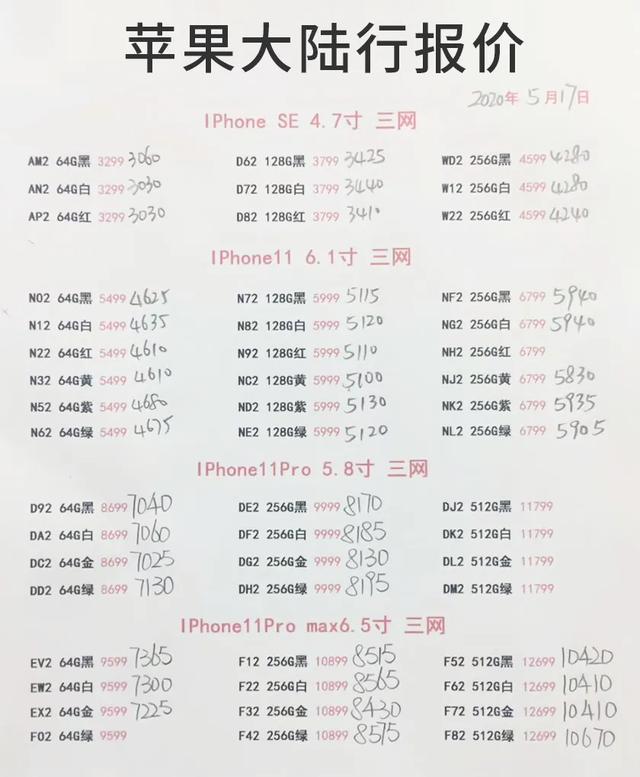 苹果大陆行报价
2020年5月17日
IPhone SE 4.7寸 三网
AM2 64G黑 3299 3060 D62 128G黑 3799 3425 WD2 256G黑 4599 4280
AN2 64G白 3299 3030 D72 128G白 3799 3440 W12 256G白 4599 4280
AP2 64G红 3299 3030 D82 128G红 3799 3410 W22 256G红 4599 4240
IPhone11 6.1寸 三网
N02 64G黑 5499 4625 N72 128G黑 5999 5115 NF2 256G黑 6799 5940
N12 64G白 5499 4635 N82 128G白 5999 5120 NG2 256G白 6799 5940
N22 64G红 5499 4610 N92 128G红 5999 5110 NH2 256G红 6799
N32 64G黄 5499 4610 NC2 128G黄 5999 5100 NJ2 256G黄 6799 5830
N52 64G紫 5499 4680 ND2 128G紫 5999 5130 NK2 256G紫 6799 5935
N62 64G绿 5499 4675 NE2 128G绿 5999 5120 NL2 256G绿 6799 5905
IPhone11Pro 5.8寸 三网
D92 64G黑 8699 7040 DE2 256G黑 9999 8170 DJ2 512G黑 11799
DA2 64G白 8699 7060 DF2 256G白 9999 8185 DK2 512G白 11799
DC2 64G金 8699 7025 DG2 256G金 9999 8130 DL2 512G金 11799
DD2 64G绿 8699 7130 DH2 256G绿 9999 8195 DM2 512G绿 11799
IPhone11Pro max6.5寸 三网
EV2 64G黑 9599 7365 F12 256G黑 10899 8515 F52 512G黑 12699 10420
EW2 64G白 9599 7300 F22 256G白 10899 8565 F62 512G白 12699 10410
EX2 64G金 9599 7225 F32 256G金 10899 8430 F72 512G金 12699 10410
F02 64G绿 9599 F42 256G绿 10899 8575 F82 512G绿 12699 10670